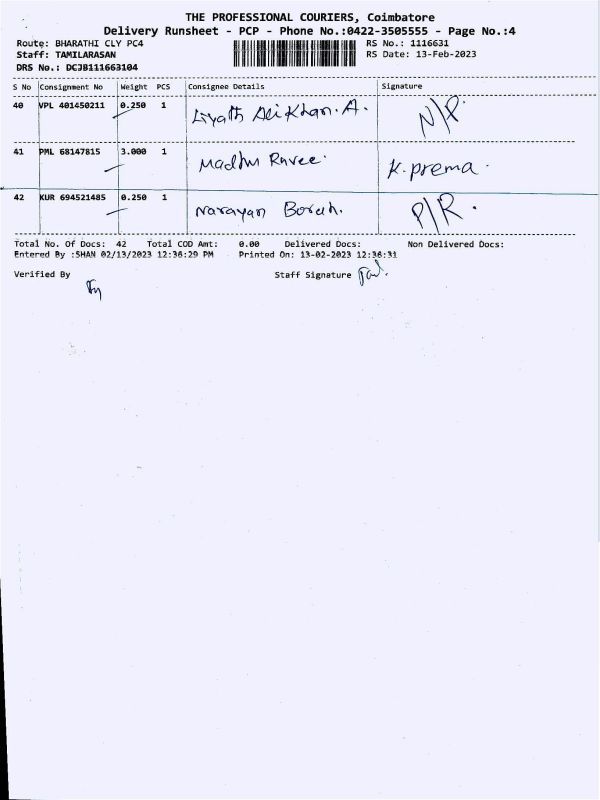 THE PROFESSIONAL COURIERS, Coimbatore
Delivery Runsheet - PCP - Phone No.:0422-3505555 - Page No.:4
Route: BHARATHI CLY PC4 RS No.: 1116631
Staff: TAMILARASAN RS Date: 13-Feb-2023
DRS No.: DCJB111663104
S No Consignment No Weight PCS Consignee Details Signature
40 VPL 401450211 0.250 1 Liyath Ali Khan. A. N/P.
41 PML 68147815 3.000 1 Madhu Ravee. K. prema.
42 KUR 694521485 0.250 1 Narayan Borah. P/R.
Total No. Of Docs: 42 Total COD Amt: 0.00 Delivered Docs: Non Delivered Docs:
Entered By :SHAN 02/13/2023 12:36:29 PM Printed On: 13-02-2023 12:36:31
Verified By Staff Signature